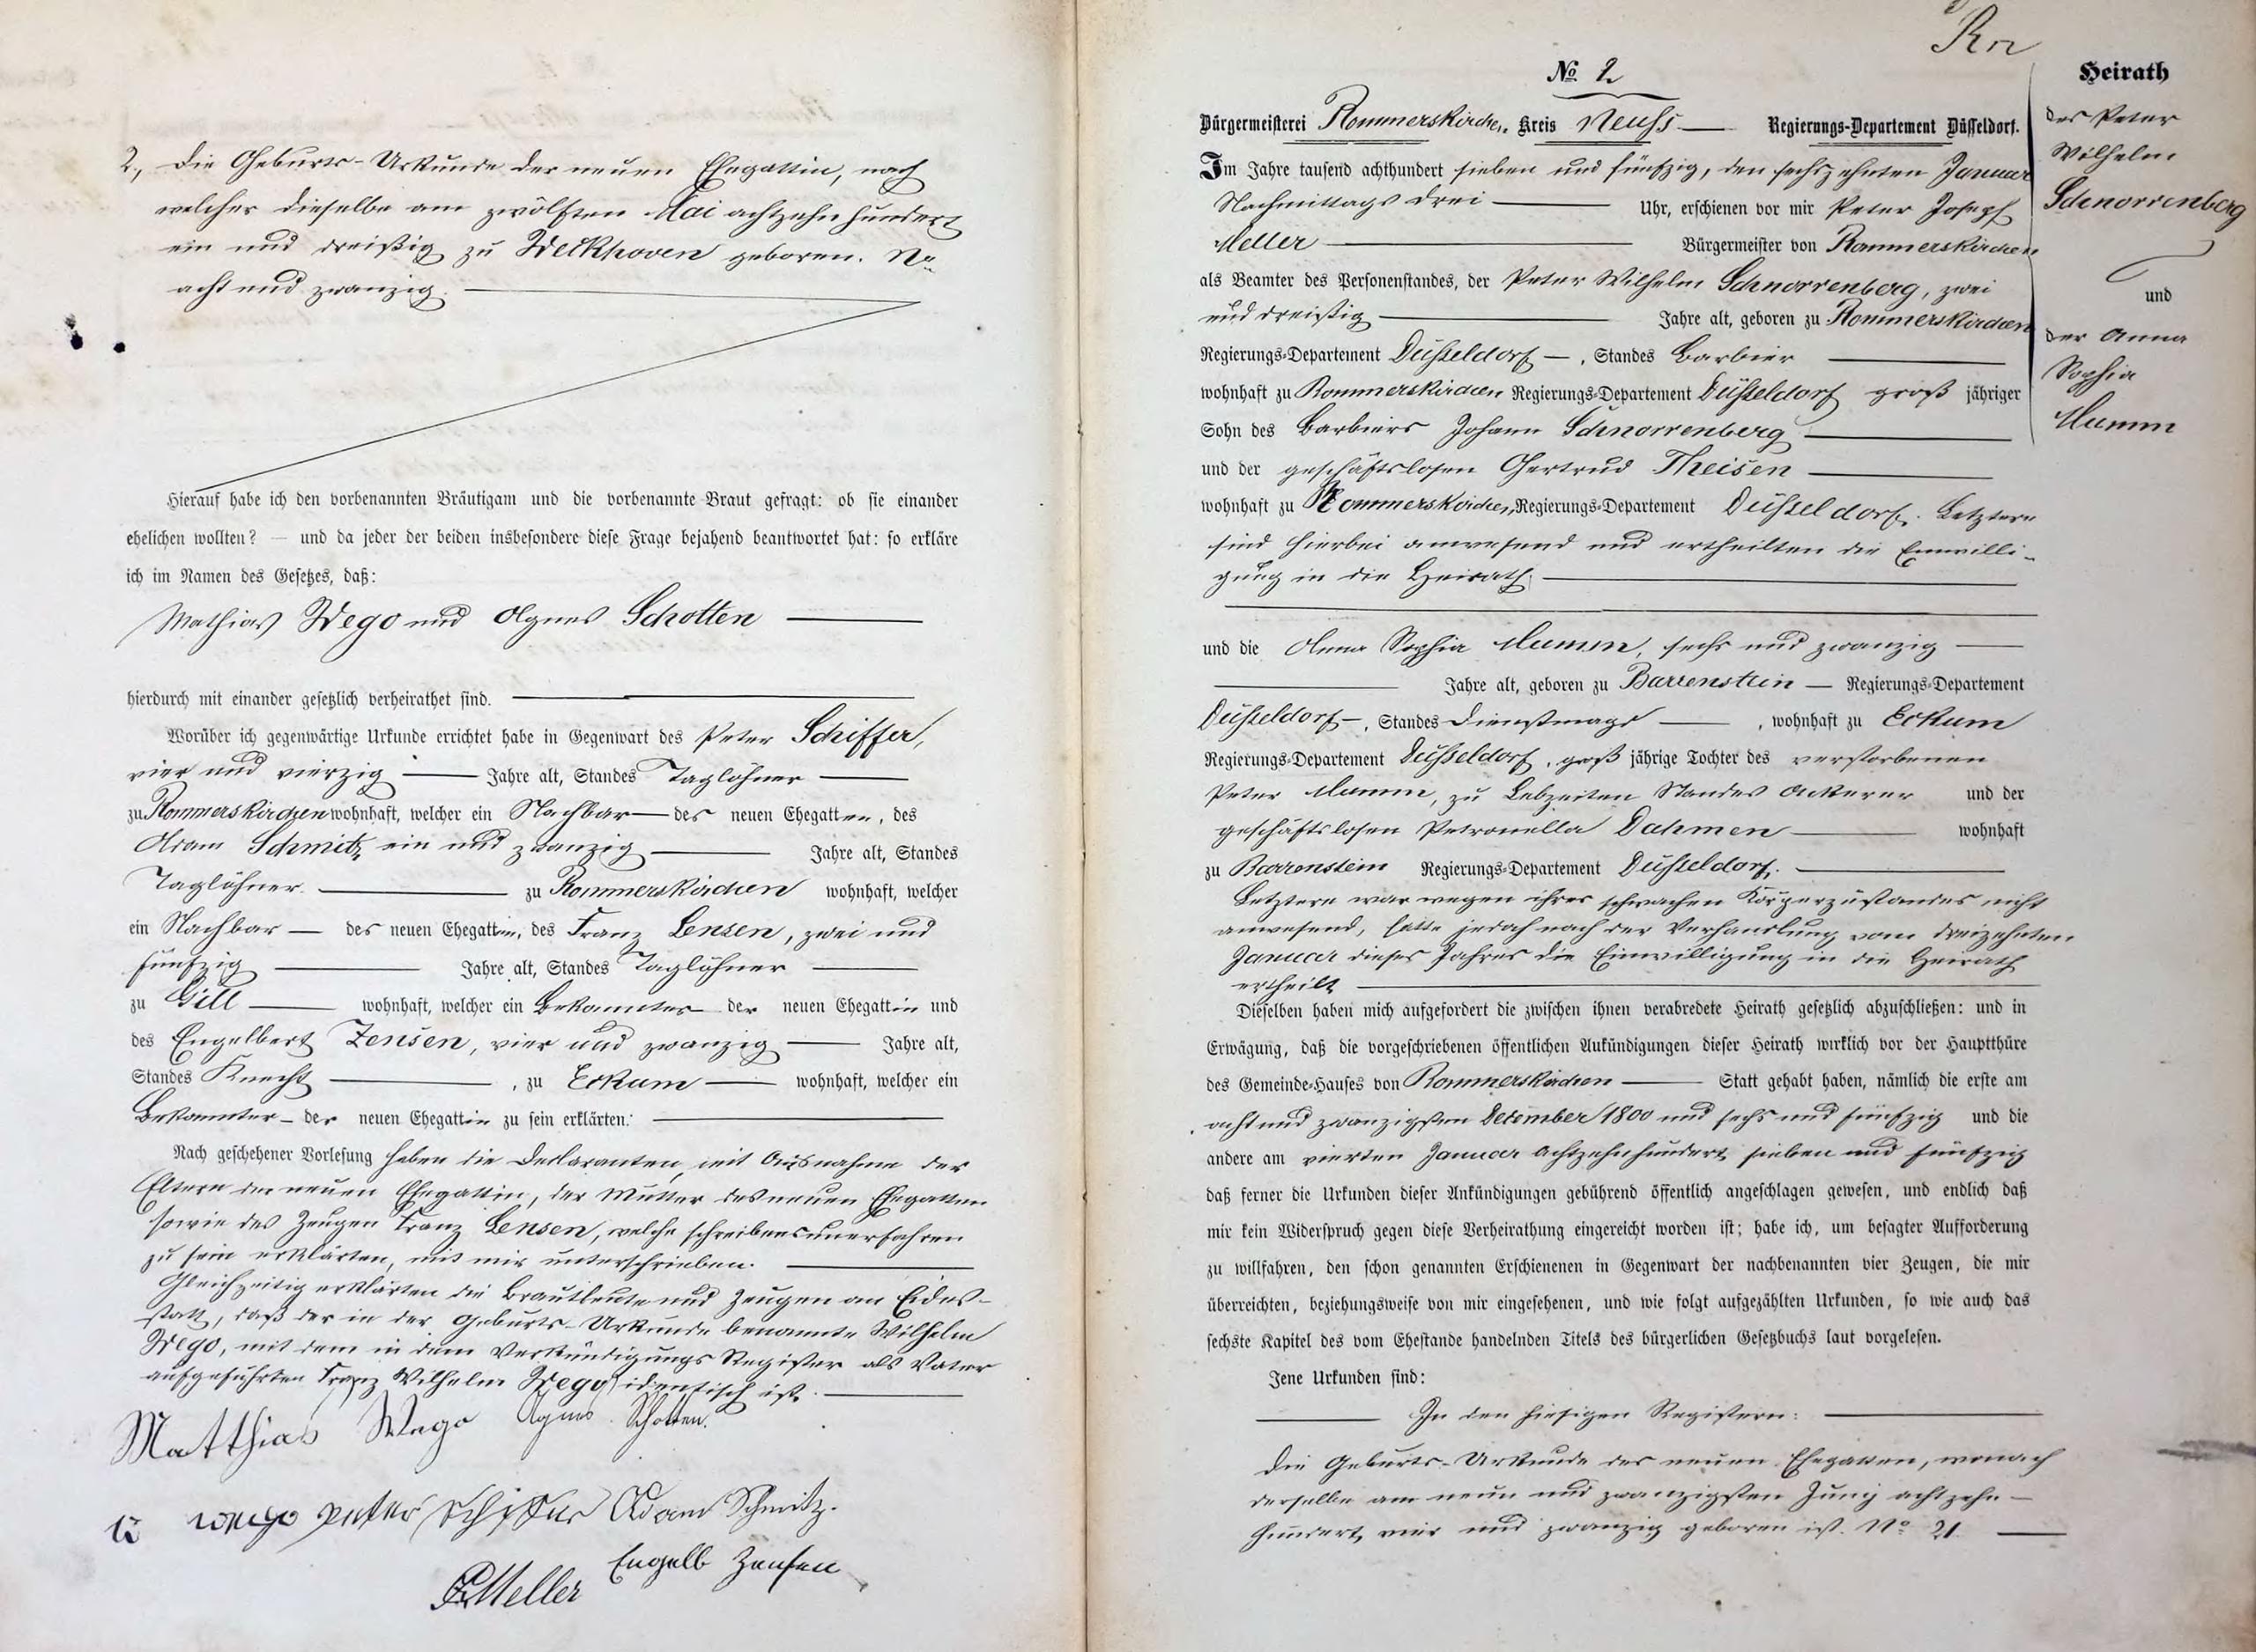 2., Die Geburts-Urkunde der neuen Ehegattin, nach
welcher dieselbe am zwölften Mai achtzehnhundert
ein und dreißig zu Weckhoven geboren. No
acht und zwanzig.
Hierauf habe ich den vorbenannten Bräutigam und die vorbenannte Braut gefragt: ob sie einander
ehelichen wollten? — und da jeder der beiden insbesondere diese Frage bejahend beantwortet hat: so erkläre
ich im Namen des Gesetzes, daß:
Mathias Wego und Agnes Schotten
hierdurch mit einander gesetzlich verheirathet sind.
Worüber ich gegenwärtige Urkunde errichtet habe in Gegenwart des Peter Schiffer,
vier und vierzig Jahre alt, Standes Taglöhner
zu Rommerskirchen wohnhaft, welcher ein Nachbar des neuen Ehegatten, des
Adam Schmitz, ein und zwanzig Jahre alt, Standes
Taglöhner zu Rommerskirchen wohnhaft, welcher
ein Nachbar des neuen Ehegatten, des Franz Lensen, zwei und
fünfzig Jahre alt, Standes Taglöhner
zu Gill wohnhaft, welcher ein Bekannter der neuen Ehegattin und
des Engelbert Zensen, vier und zwanzig Jahre alt,
Standes Knecht, zu Eckum wohnhaft, welcher ein
Bekannter der neuen Ehegattin zu sein erklärten:
Nach geschehener Vorlesung haben die Declaranten, mit Ausnahme der
Eltern der neuen Ehegattin, der Mutter des neuen Ehegatten
sowie des Zeugen Franz Lensen, welche schreibensunerfahren
zu sein erklärten, mit mir unterschrieben.
Gleichzeitig erklärten die Brautleute und Zeugen an Eides-
statt, daß der in der Geburts-Urkunde benannte Wilhelm
Wego, mit dem in dem Verkündigungs Register als Vater
aufgeführten Franz Wilhelm Wego identisch ist.
Matthias Wego Agnes Schotten.
W wego peter Schiffer Adam Schmitz.
Engelb Zensen
PJMeller
Rn
No 2.
Bürgermeisterei Rommerskirchen, Kreis Neuss Regierungs-Departement Düsseldorf.
Im Jahre tausend achthundert sieben und fünfzig, den sechszehnten Januar
Nachmittags drei Uhr, erschienen vor mir Peter Joseph
Meller Bürgermeister von Rommerskirchen
als Beamter des Personenstandes, der Peter Wilhelm Schnorrenberg, zwei
und dreißig Jahre alt, geboren zu Rommerskirchen
Regierungs-Departement Düsseldorf, Standes Barbier
wohnhaft zu Rommerskirchen Regierungs-Departement Düsseldorf groß jähriger
Sohn des Barbiers Johann Schnorrenberg
und der geschäftslosen Gertrud Theisen
wohnhaft zu Rommerskirchen, Regierungs-Departement Düsseldorf. Letztere
sind hierbei anwesend und ertheilten die Einwilli-
gung in die Heirath.
und die Anna Sophia Mumm, sechs und zwanzig
Jahre alt, geboren zu Barrenstein Regierungs-Departement
Düsseldorf, Standes Dienstmagd, wohnhaft zu Eckum
Regierungs-Departement Düsseldorf, groß jährige Tochter des verstorbenen
Peter Mumm, zu Lebzeiten Standes Ackerer und der
geschäftslosen Petronella Dahmen wohnhaft
zu Barrenstein Regierungs-Departement Düsseldorf.
Letztere war wegen ihres schwachen Körperzustandes nicht
anwesend, hatte jedoch nach der Verhandlung vom dreizehnten
Januar dieses Jahres die Einwilligung in die Heirath
ertheilt
Dieselben haben mich aufgefordert die zwischen ihnen verabredete Heirath gesetzlich abzuschließen: und in
Erwägung, daß die vorgeschriebenen öffentlichen Ankündigungen dieser Heirath wirklich vor der Hauptthüre
des Gemeinde-Hauses von Rommerskirchen Statt gehabt haben, nämlich die erste am
acht und zwanzigsten Dezember 1800 und sechs und fünfzig und die
andere am vierten Januar achtzehnhundert sieben und fünfzig
daß ferner die Urkunden dieser Ankündigungen gebührend öffentlich angeschlagen gewesen, und endlich daß
mir kein Widerspruch gegen diese Verheirathung eingereicht worden ist; habe ich, um besagter Aufforderung
zu willfahren, den schon genannten Erschienenen in Gegenwart der nachbenannten vier Zeugen, die mir
überreichten, beziehungsweise von mir eingesehenen, und wie folgt aufgezählten Urkunden, so wie auch das
sechste Kapitel des vom Ehestande handelnden Titels des bürgerlichen Gesetzbuchs laut vorgelesen.
Jene Urkunden sind:
In den hiesigen Registern:
Die Geburts-Urkunde des neuen Ehegatten, wonach
derselbe am neun und zwanzigsten Juny achtzehn-
hundert vier und zwanzig geboren ist. No 21.
Heirath
des Peter
Wilhelm
Schnorrenberg
und
der Anna
Sophia
Mumm